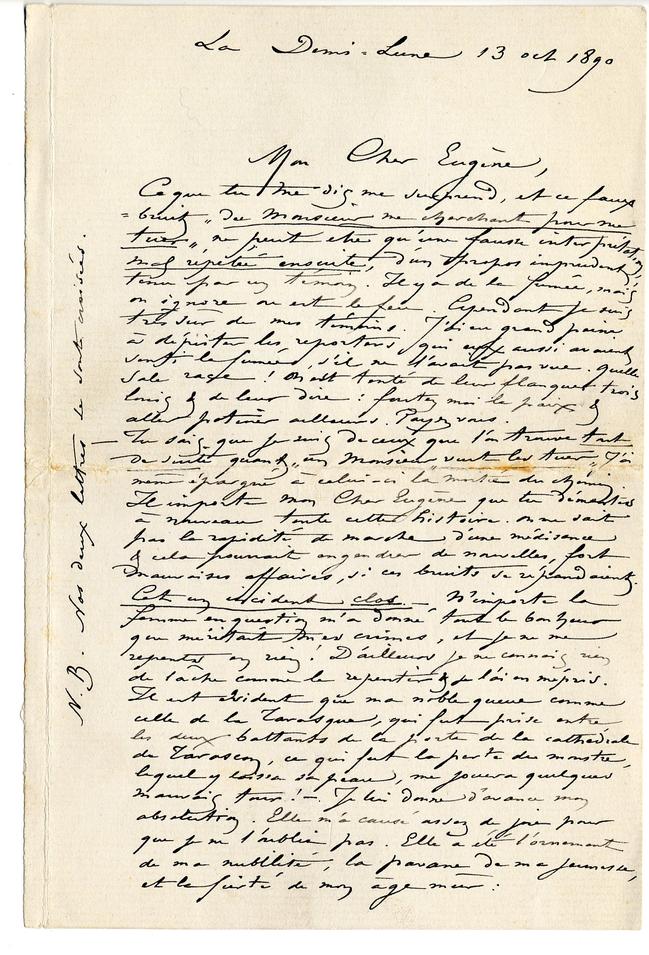 La Demi-Lune 13 oct 1890
Mon Cher Eugène,
Ce que tu me dis me surprend, et ce faux
=bruit „de Monsieur me cherchant pour me
tuer„, ne peut etre qu'une fausse interprétation,
mal repetée ensuite, d'un propos imprudent,
tenu par un témoin. Il y a de la fumée, mais
on ignore ou est le feu. Cependant je suis
très sur de mes témoins. J'ai eu grand peine
à dépister les reporters, qui eux aussi avaient
senti la fumée, s'il ne l'avait pas vue. quelle
sale race ! On est tenté de leur flanquer trois
louis & de leur dire : foutez moi la paix &
aller potiner ailleurs. Payez vous.
Tu sais que je suis de ceux que l'on trouve tout
de suite quand „un Monsieur„ veut les tuer„ J'ai
même épargné à celui-ci la moitié du chemin.
Il importe mon Cher Eugène que tu démentes
à nouveau toute cette histoire. on ne sait
pas la rapidité de marche d'une médisance
& cela pourrait engendrer de nouvelles, fort
mauvaises affaires, si ces bruits se répandaient.
C'est un incident clos. N'importe la
femme en question m'a donné tout le bonheur
que méritait mes crimes, et je ne me
repents en rien ! D'ailleurs je ne connais rien
de lâche comme le repentir & je l'ai en mépris.
Il est évident que ma noble queue comme
celle de la Tarasque, qui fut prise entre
les deux battants de la porte de la cathédrale
de Tarascon, ce qui fut la perte du monstre,
lequel y laissa sa peau, me jouera quelques
mauvais tour ! – Je lui donne d'avance mon
absolution. Elle m'a causé assez de joie pour
que je ne l'oublie pas. Elle a été l'ornement
de ma nubilité, la pavane de ma jeunesse,
et la fierté de mon âge mûr :
N.B. Nos deux lettres se sont croisées.